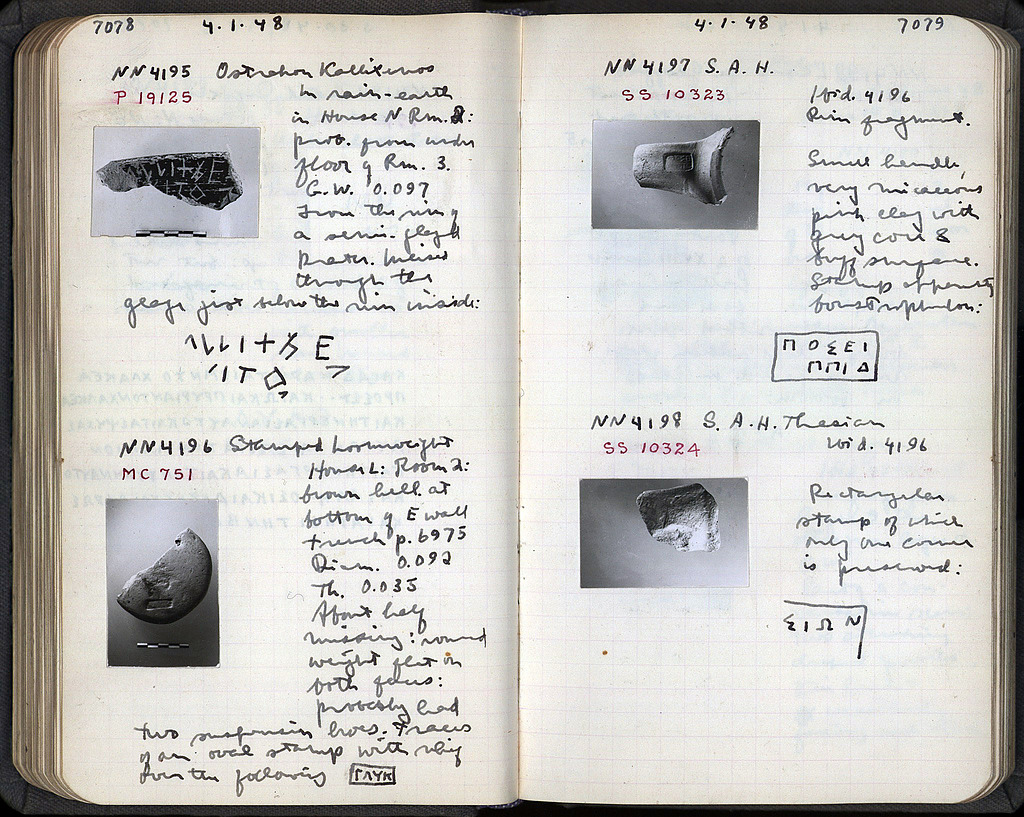 7078 4.1.48
NN 4195 Ostrakon Kallixenos
P 19125
In rain-earth
in House N Rm. 2:
prob. from under
floor of Rm. 3.
G.W. 0.097
From the rim of
a semi-glazed
krater. Incised
through the
glaze just below the rim inside:
NN 4196 Stamped Loomweight
MC 751
House L: Room 2:
brown fill at
bottom of E wall
trench p. 6975
Diam. 0.092
Th. 0.035
About half
missing: round
weight flat on
both faces:
probably had
two suspension holes. Traces
of an oval stamp with
over the following ΓΛΥΚ
4.1.48 7079
NN 4197 S.A.H.
SS 10323
Ibid. 4196
Rim fragment.
Small handle,
very micaceous
pink clay with
grey core &
buff surface.
Stamp apparently
boustrophedon:
ΠΟΣΕΙ
ΠΠΙΔ
NN 4198 S.A.H. Thasian
SS 10324
Ibid. 4196
Rectangular
stamp of which
only one corner
is preserved:
ΣΙΩΝ